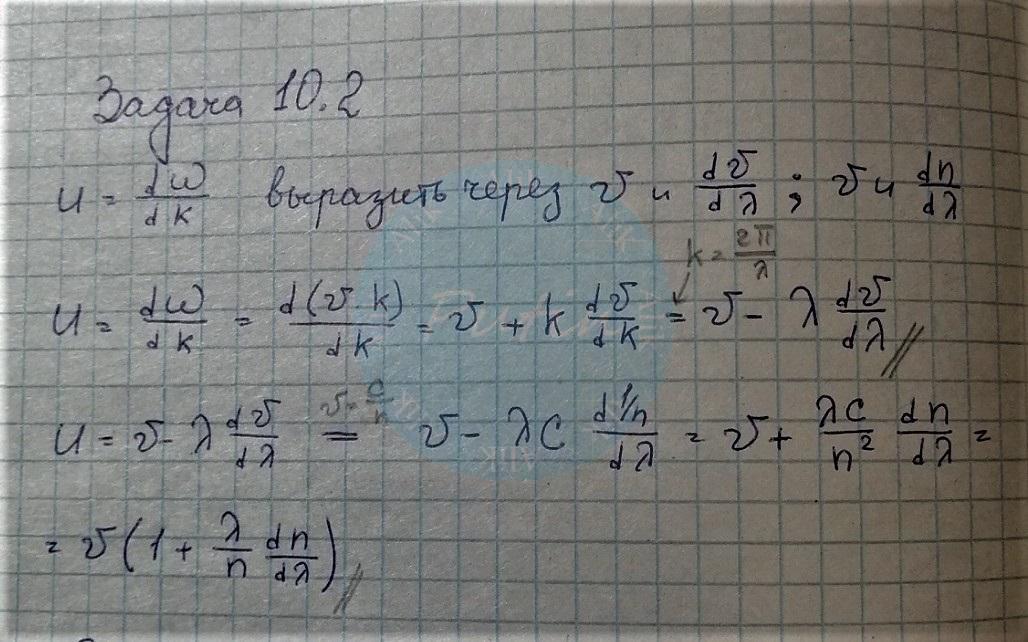 Задача 10.2
u = dω/dk выразить через v и dv/dλ ; v и dn/dλ
k = 2π/λ
u = dω/dk = d(v k)/dk = v + k dv/dk = v - λ dv/dλ //
v = c/n
u = v - λ dv/dλ = v - λc d 1/n / dλ = v + λc/n² dn/dλ =
= v (1 + λ/n dn/dλ) //